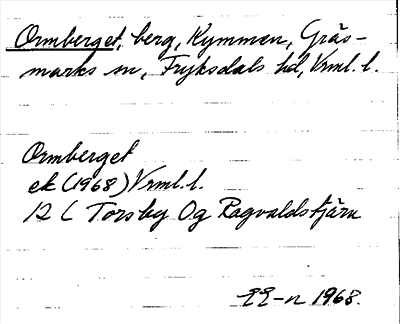 Ormberget, berg, Kymmen, Gräs-
marks sn, Fryksdals hd, Vrml. l.
Ormberget
ek (1968) Vrml. l.
12 C Torsby Og Ragvaldstjärn
1968.